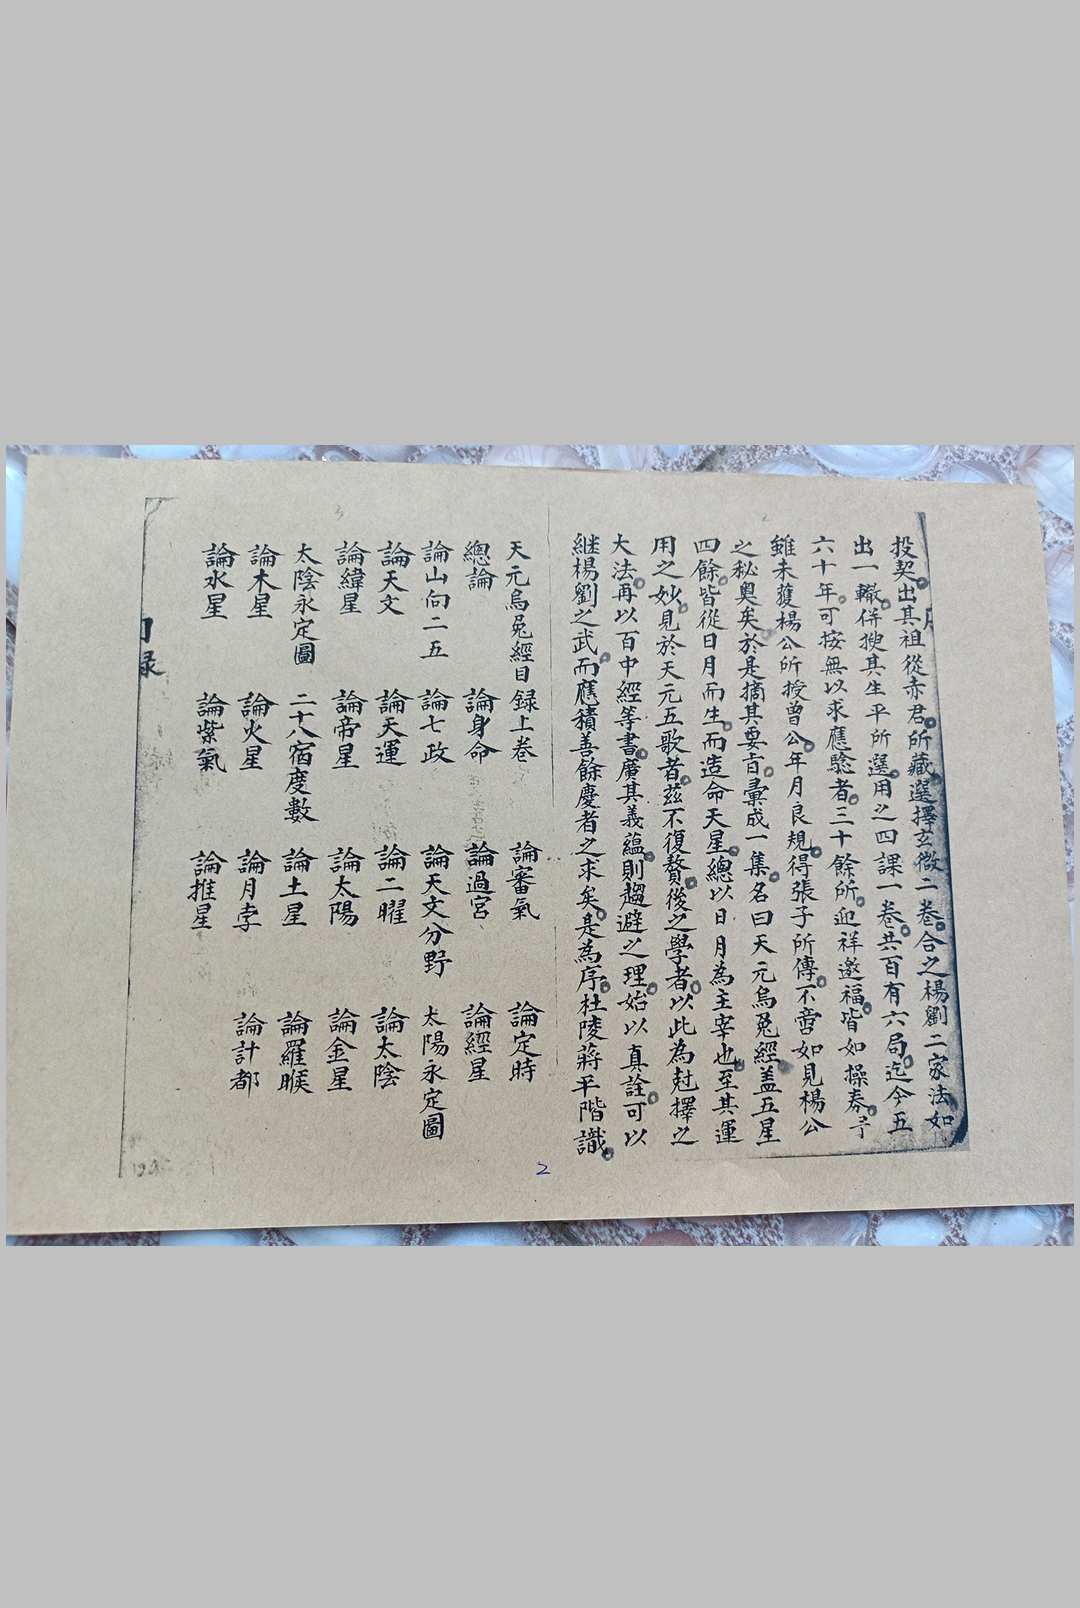 投契出其祖從赤君所藏選擇玄微二卷合之楊劉二家法如
出一轍併搜其生平所選用之四課一卷共百有六局迄今五
六十年可按無以求應驗者三十餘所迎祥邀福皆如操券予
雖未獲楊公所授曾公年月良規得張子所傳不啻如見楊公
之秘奧矣於是摘其要旨彙成一集名曰天元烏兔經蓋五星
四餘皆從日月而生而造命天星總以日月為主宰也至其運
用之妙見於天元五歌者茲不復贅後之學者以此為尅擇之
大法再以百中經等書廣其義蘊則趨避之理始以真詮可以
継楊劉之武而應積善餘慶者之求矣是為序杜陵蔣平階識
天元烏兔經目録上卷 論審氣 論定時
總論 論身命 論過宮 論經星
論山向二五 論七政 論天文分野 太陽永定圖
論天文 論天運 論二曜 論太陰
論緯星 論帝星 論太陽 論金星
太陰永定圖 二十八宿度數 論土星 論羅睺
論木星 論火星 論月孛 論計都
論水星 論紫氣 論推星
録
2